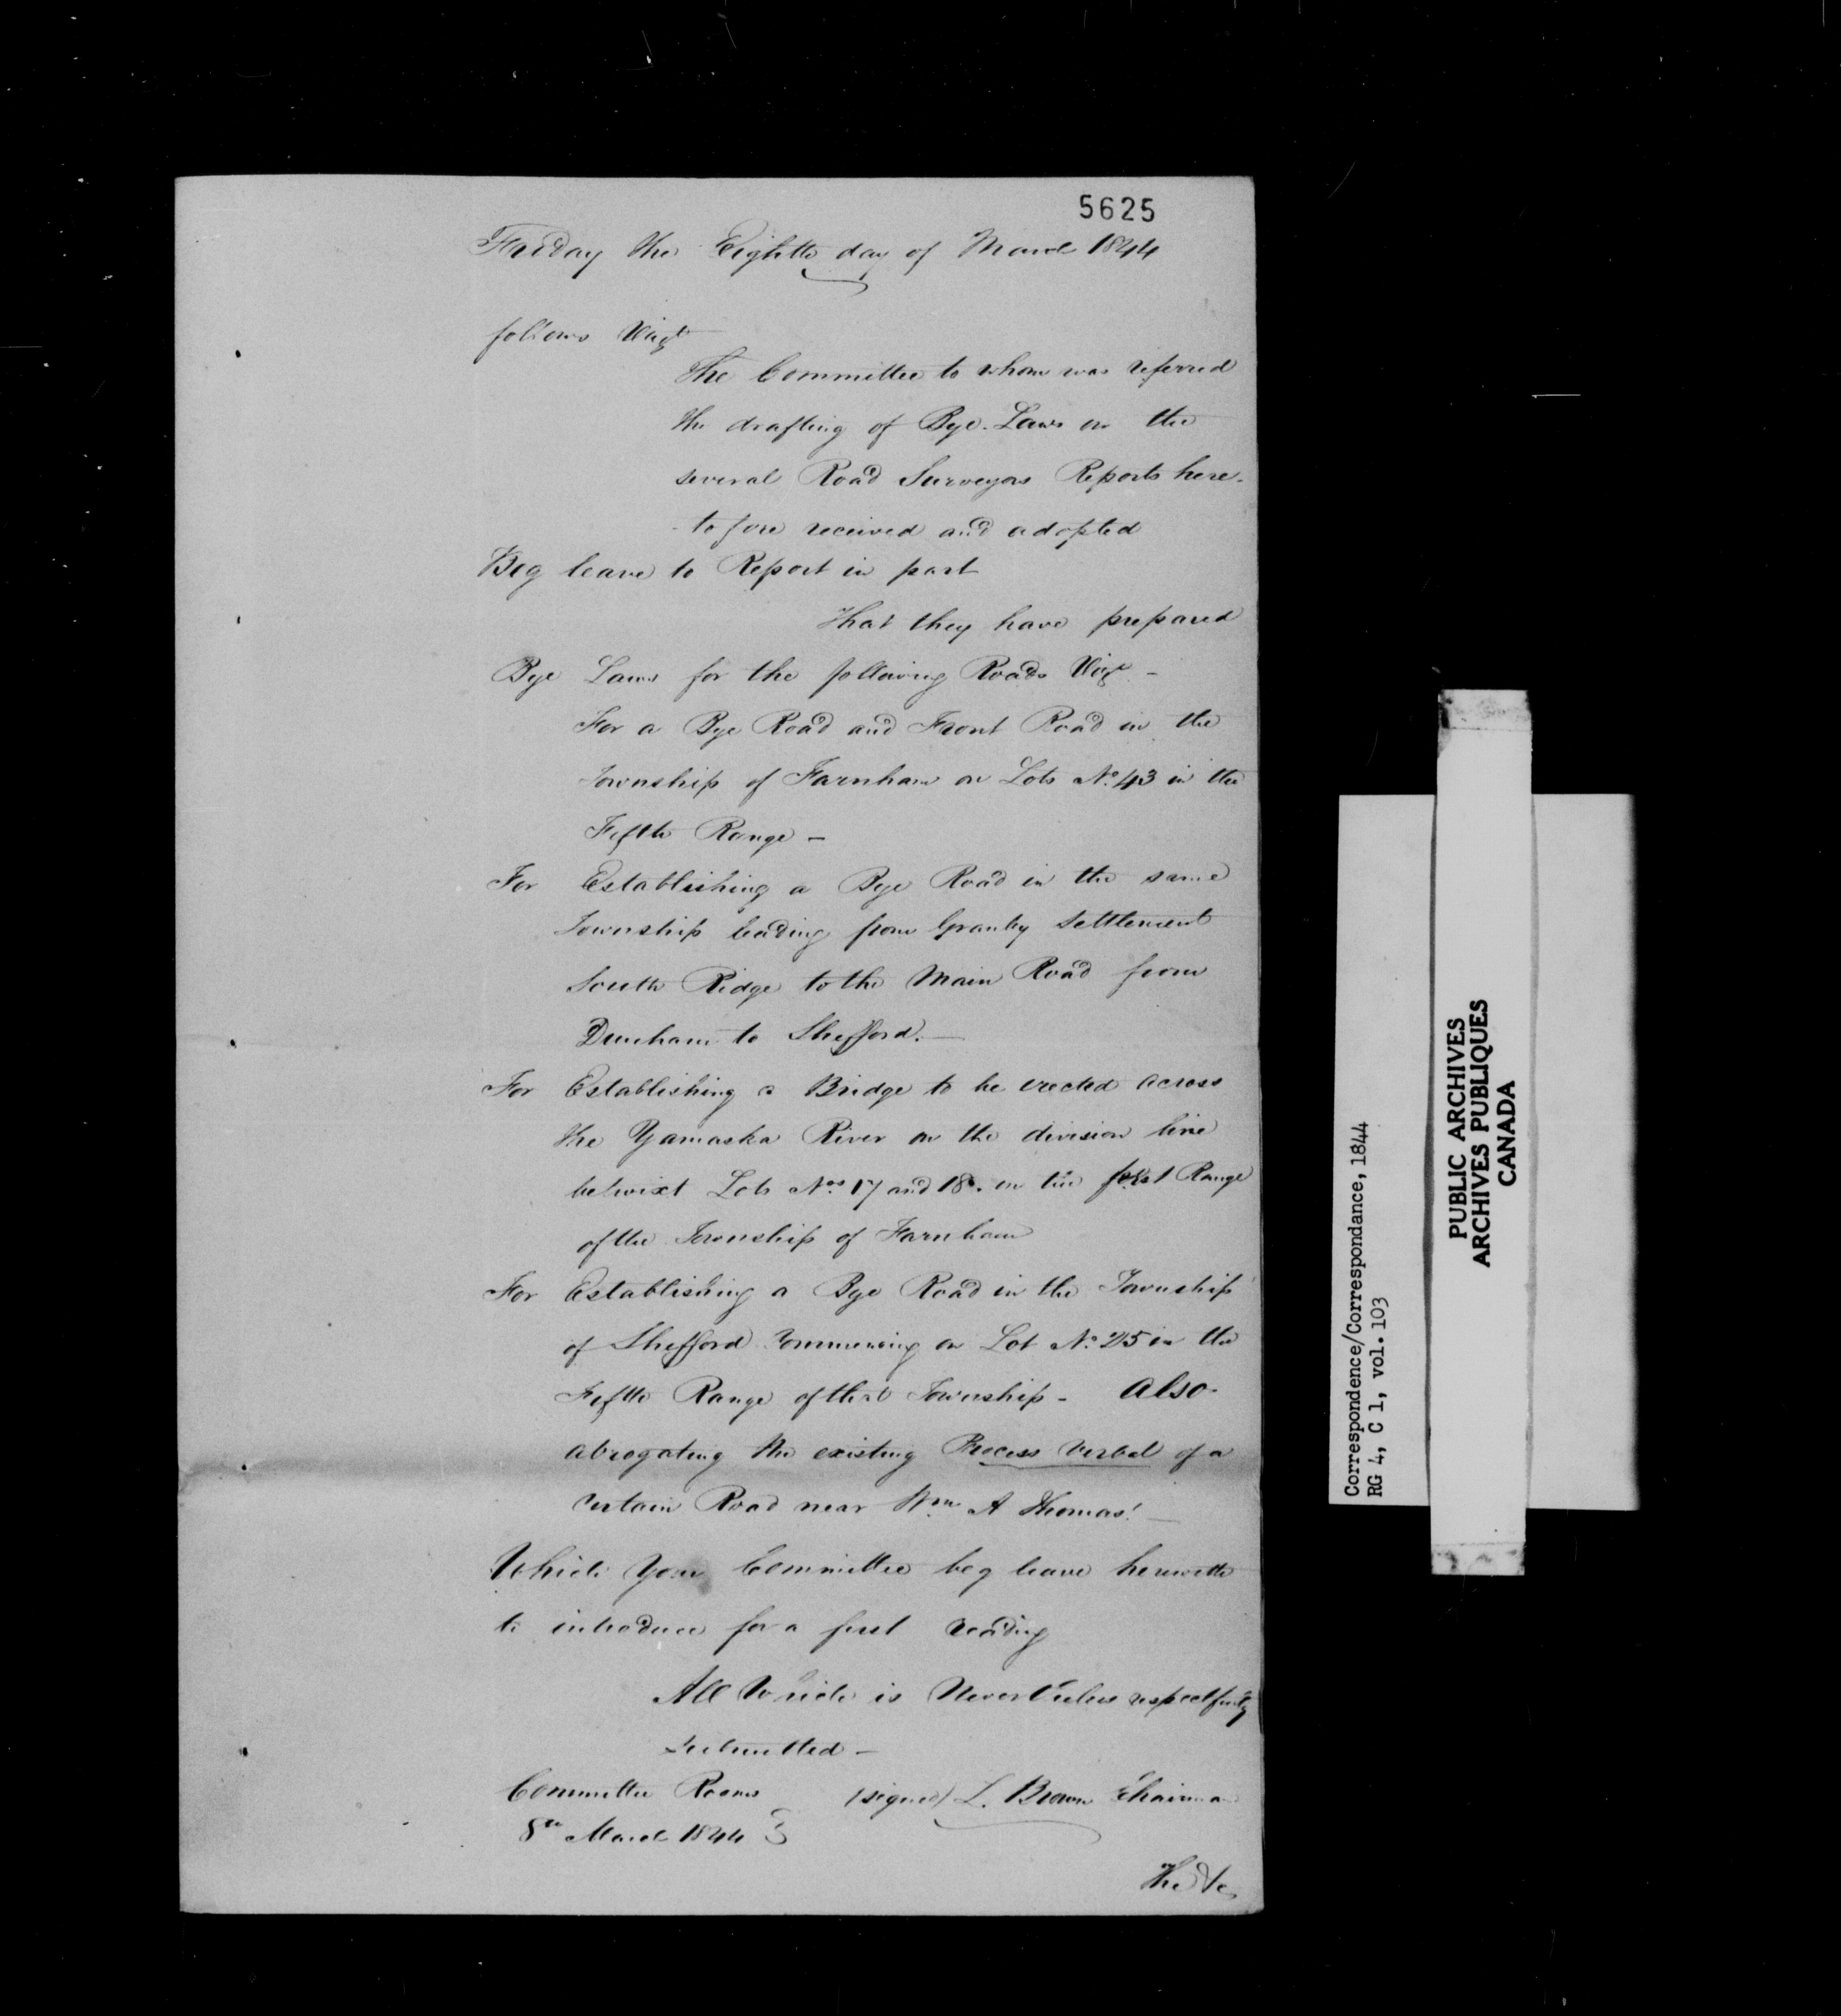 5625
Friday the Eighth day of March 1844
follows Vizt
The Committee to whom was referred
the drafting of Bye-Laws on the
several Road Surveyors Reports here-
-tofore received and adopted
Beg leave to Report in part
That they have prepared
Bye Laws for the following Roads Vizt -
For a Bye Road and Front Road in the
Township of Farnham on Lots No. 43 in the
Fifth Range -
For Establishing a Bye Road in the same
Township leading from Granby Settlement
South Ridge to the Main Road from
Dunham to Shefford. -
For Establishing a Bridge to be erected across
the Yamaska River on the division line
betwixt Lots Nos. 17 and 18. in the first Range
of the Township of Farnham
For Establishing a Bye Road in the Township
of Shefford Commencing on Lot No. 25 in the
Fifth Range of that Township - Also-
abrogating the existing Process Verbal of a
certain Road near Wm. A Thomas' -
Which Your Committee beg leave herewith
to introduce for a first reading
All Which is Nevertheless respectfully
submitted -
Committee Rooms (signed) L. Brown Chairman
8th March 1844
The
Correspondence/Correspondance, 1844
RG 4, C 1, vol. 103
PUBLIC ARCHIVES
ARCHIVES PUBLIQUES
CANADA